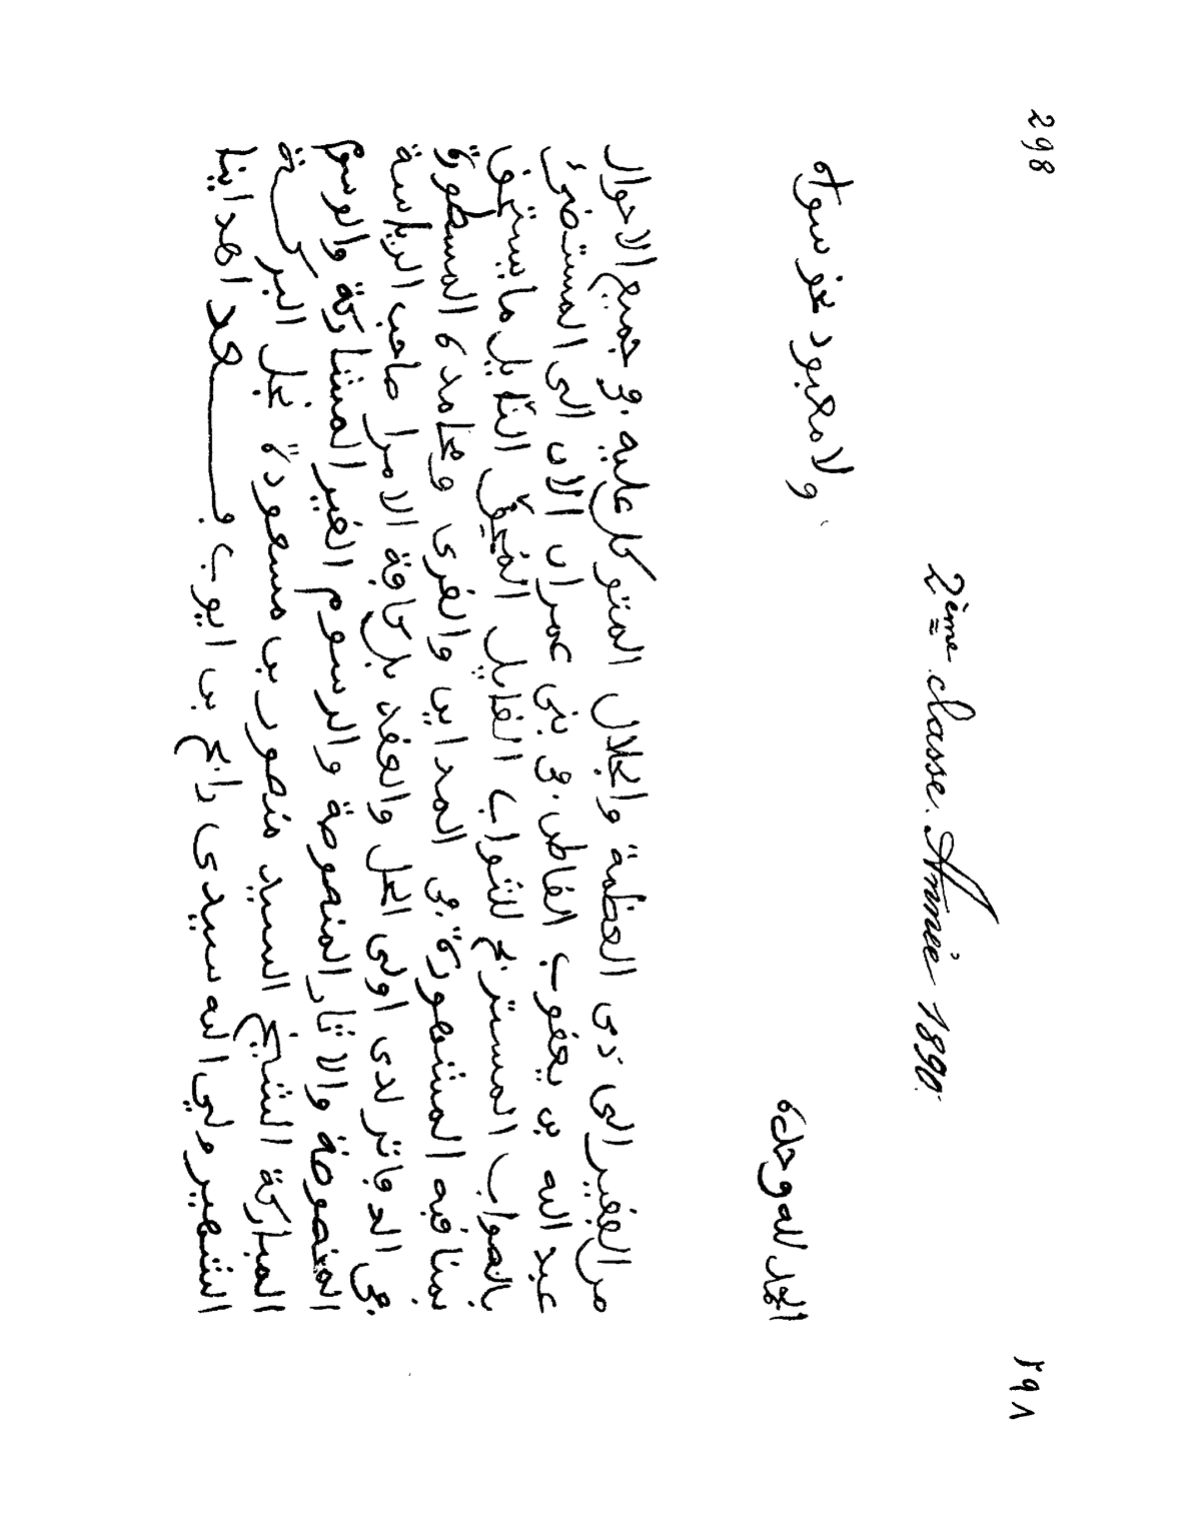 298
٢٩٨
2ème classe. Année 1890.
الحمد لله وحده
ولا معبود عز سواه
من الفقير الى ذى العظمة والجلال المتوكل عليه في جميع الاحوال
عبد الله بن يعقوب القاطن في بنى عمران الان الى المستضئ
بالصواب المستر بح للثواب القايل النايل ما يستحق
بمناقبه المشهورة في المداين والقرى ومحامده المسطورة
في الدفاتر لدى اولى الحل والعقد بل كافة الامرا صاحب الرياسة
المخصوصة والاثار المنصوصة والرسوم الغير المشاركة والوسم
المباركة الشيخ السيد منصور بن مسعودة نجل البركة
الشهير ولي الله سيدى رابح بن ايوب وقد اهدانيا